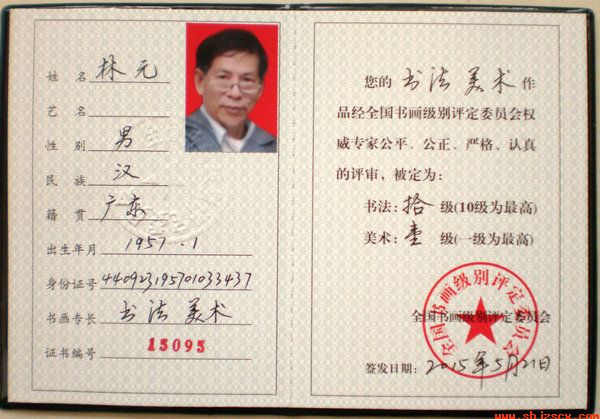 姓 名 林元
艺 名
性 别 男
民 族 汉
籍 贯 广东
出生年月 1957.1
身份证号 440923195701033437
书画专长 书法美术
证书编号 15095
您的书法美术作
品经全国书画级别评定委员会权
威专家公平、公正、严格、认真
的评审，被定为：
书法：拾级(10级为最高)
美术：壹级(一级为最高)
全国书画级别评定委员会
全国书画级别评定委员会
签发日期：2015年5月21日
www.shjzscx.com